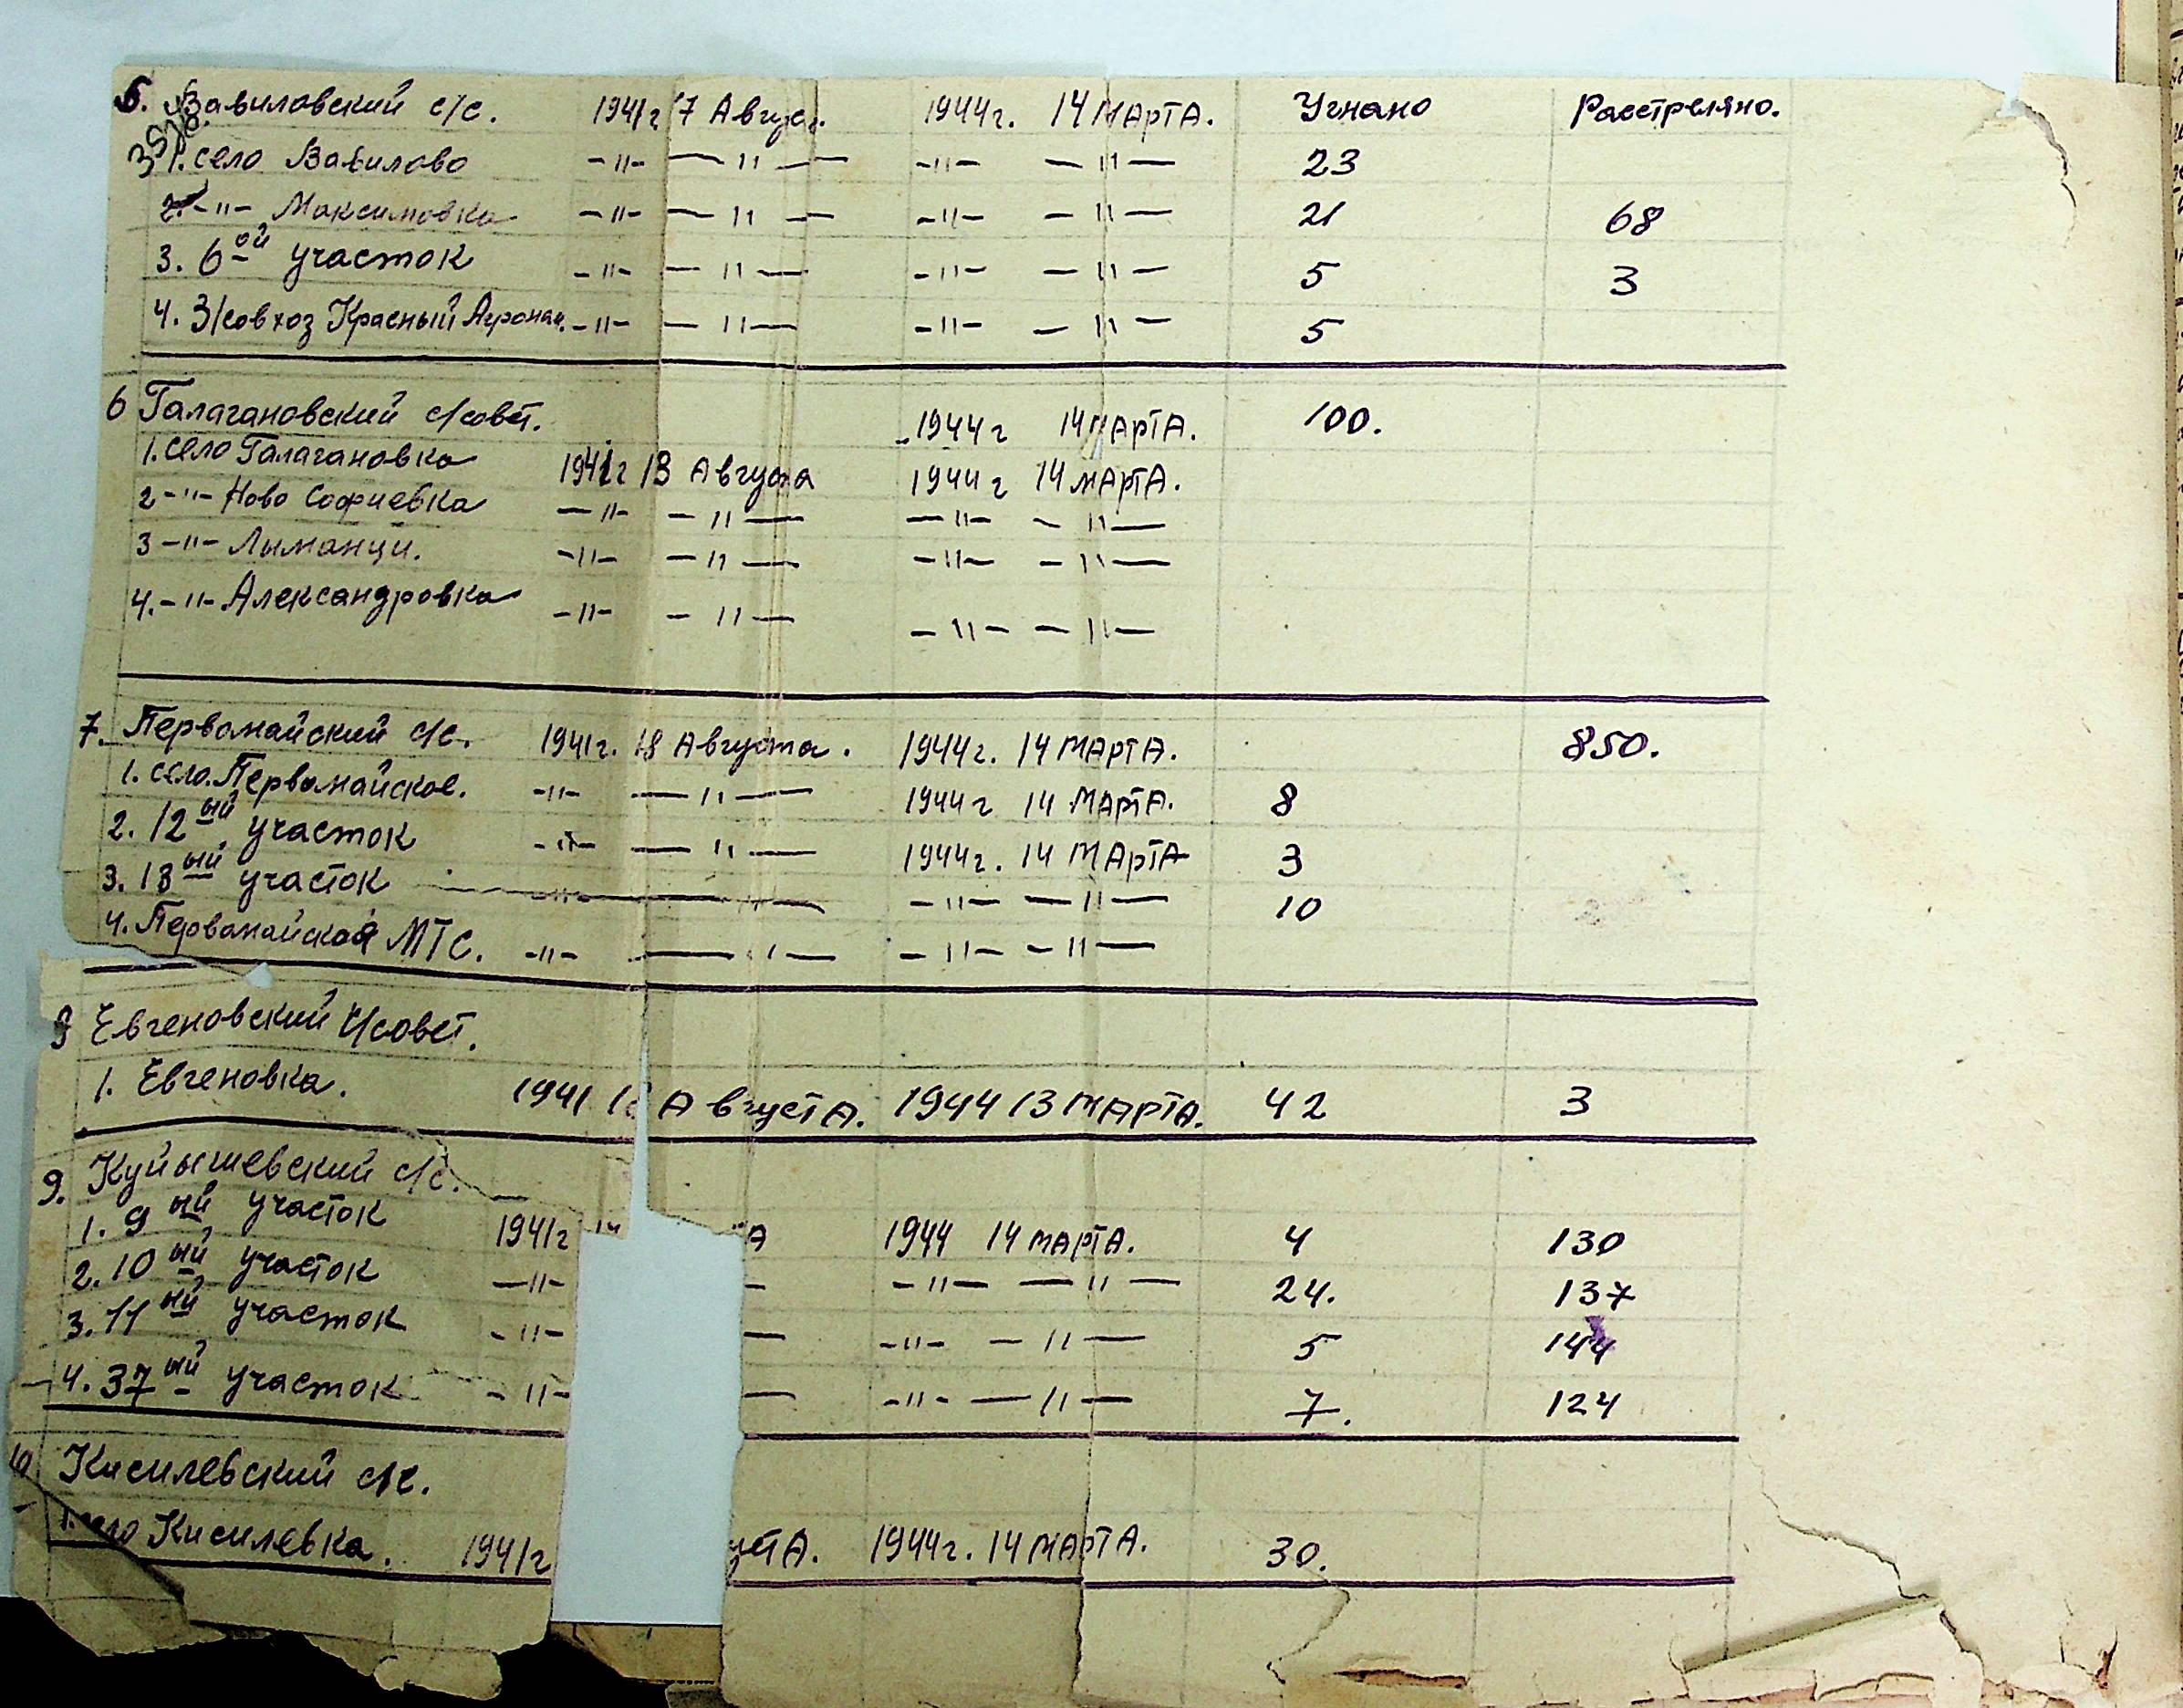 5. Вавиловский с/с. 1941г 17 Август. 1944г. 14 МАРТА. Угнано Расстреляно.
1. село Вавилово -"- — " — -"- — " — 23
2. -"- Максимовка -"- — " — -"- — " — 21 68
3. 6ой участок -"- — " — -"- — " — 5 3
4. З/совхоз Красный Агроном. -"- — " — -"- — " — 5
6 Галагановский с/совет. 1944г 14 МАРТА. 100.
1. село Галагановка 1941г 18 Августа 1944г 14 МАРТА.
2 -"- Ново Софиевка -"- — " — -"- — " —
3 -"- Лыманци. -"- — " — -"- — " —
4. -"- Александровка -"- — " — -"- — " —
7. Первомайский с/с. 1941г. 18 Августа. 1944г. 14 МАРТА. 850.
1. село. Первомайское. -"- — " — 1944г 14 МАРТА. 8
2. 12ый участок -"- — " — 1944г. 14 МАРТА 3
3. 13ый участок -"- — " — -"- — " — 10
4. Первомайская МТС. -"- — " — -"- — " —
8 Евгеновский с/совет.
1. Евгеновка. 1941 АвгустА. 1944 13 МАРТА. 42 3
9. Куйышевский с/с.
1. 9ый участок 1941г А 1944 14 МАРТА. 4 130
2. 10ый участок -"- — -"- — " — 24. 137
3. 11ый участок -"- — -"- — " — 5 144
4. 37ый участок -"- — -"- — " — 7. 124
10 Кисилевский с/с.
1. село Кисилевка. 1941г устА. 1944г. 14 МАРТА. 30.